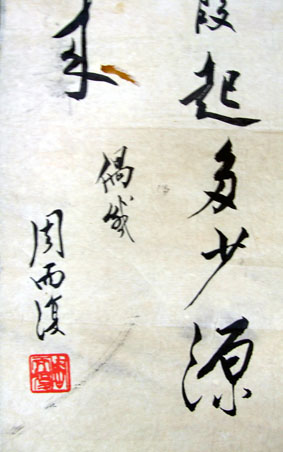 段起多少源
来
偶成
周而復